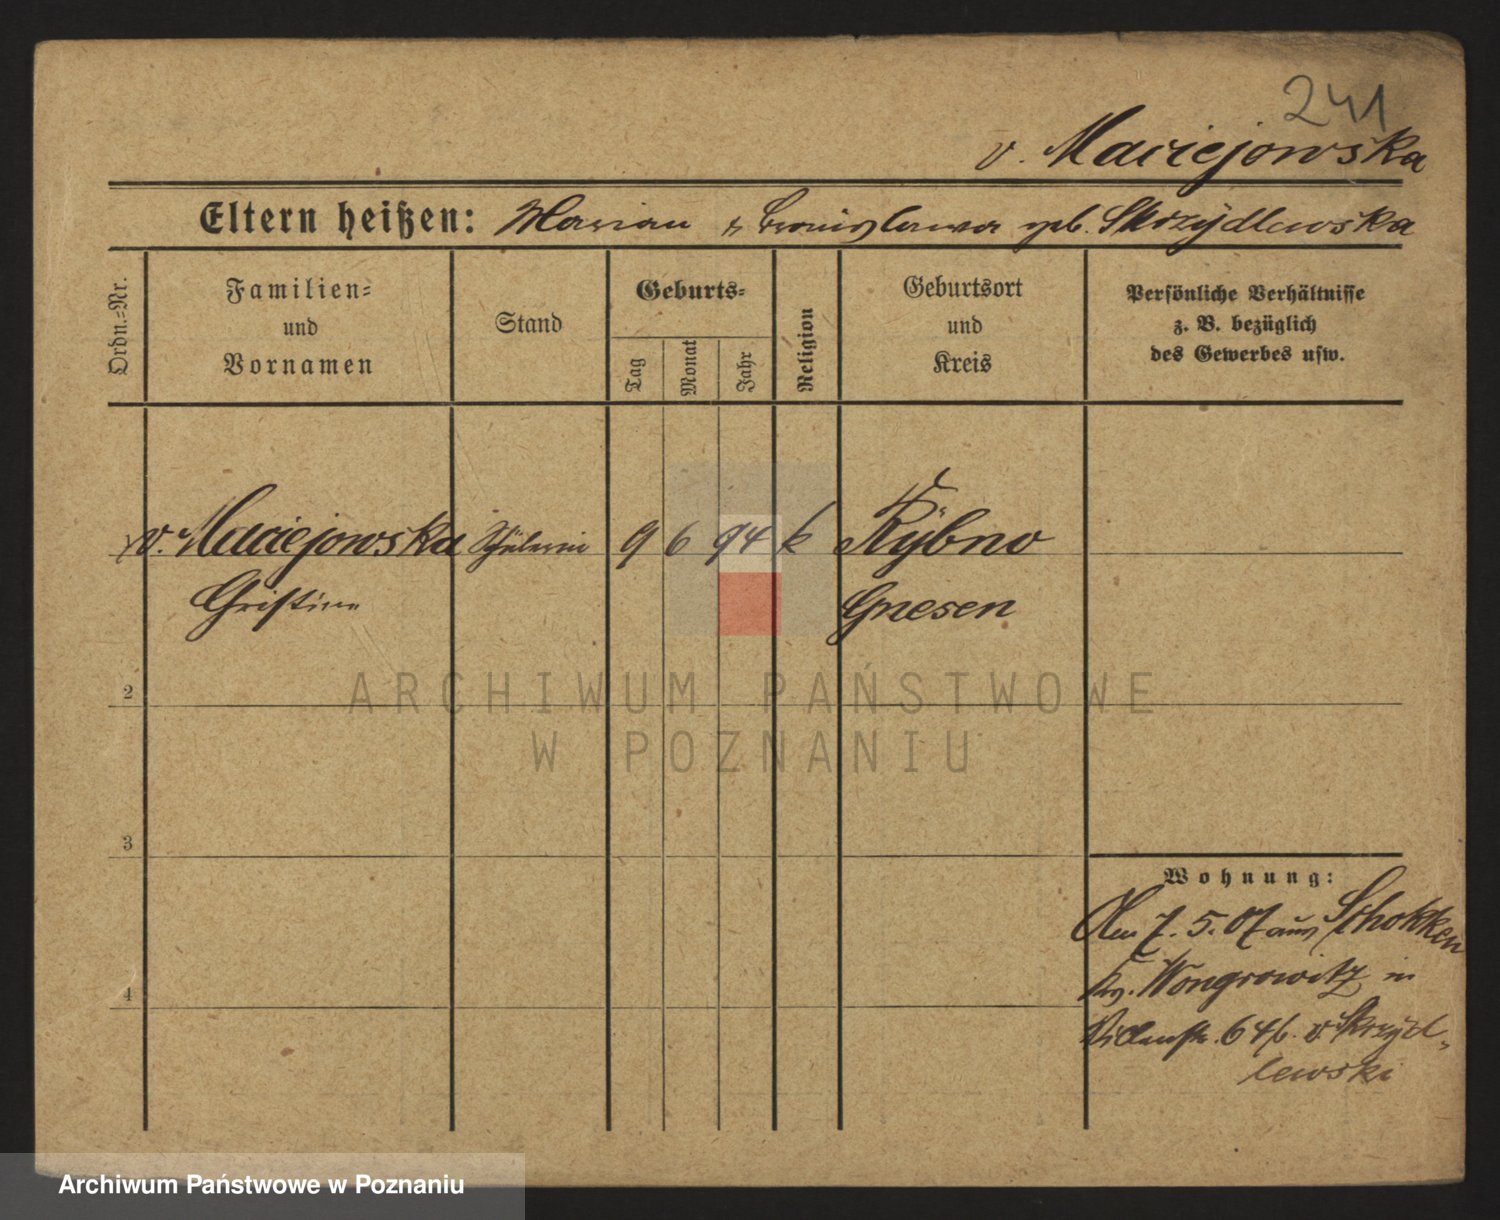 241
v. Maciejowska
Eltern heißen: Marian & Bronislawa geb. Skrzydlewska
Ordn.-Nr.
Familien-
und
Vornamen
Stand
Geburts-
Tag
Monat
Jahr
Religion
Geburtsort
und
Kreis
Persönliche Verhältnisse
z. B. bezüglich
des Gewerbes usw.
v. Maciejowska Schülerin 9 6 94 k Rybno
Christine Gnesen
2
3
4
Wohnung:
Am 7. 5. 07 aus Schokken
Kr. Wongrowitz in
64 b. v Skrzyd-
lewski
ARCHIWUM PAŃSTWOWE
W POZNANIU
Archiwum Państwowe w Poznaniu